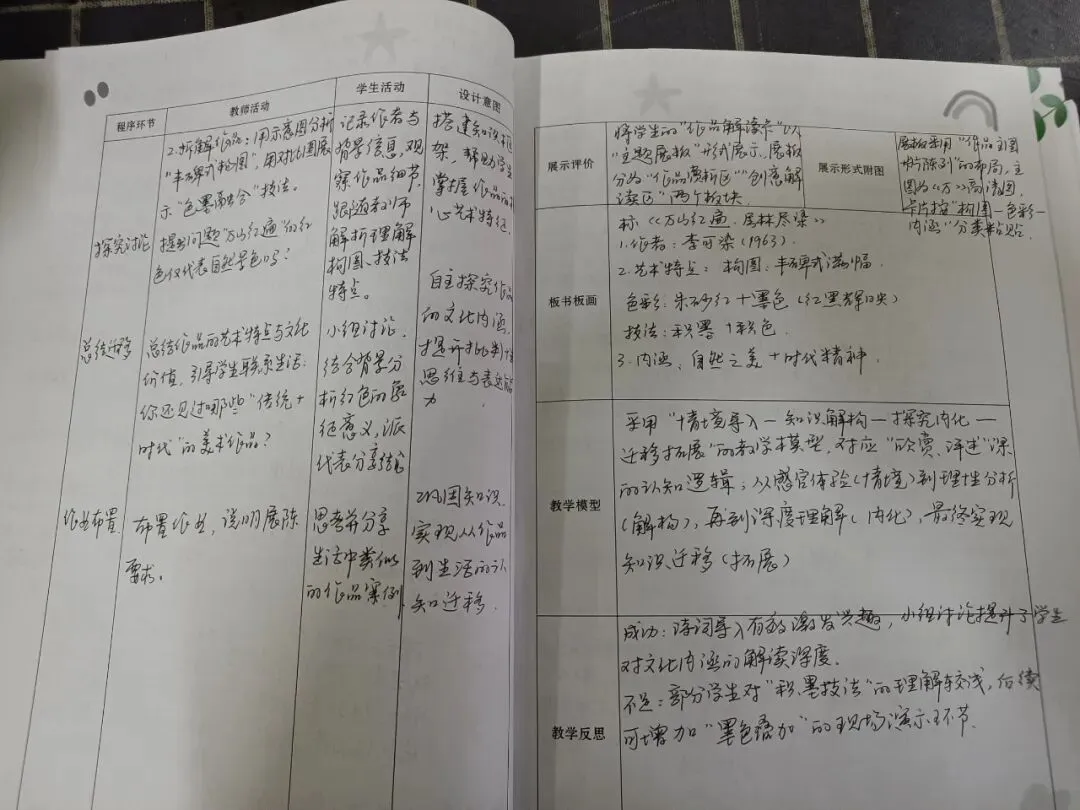 程序环节
教师活动
学生活动
设计意图
2.拆解作品：用示意图分析
“丰碑式构图”，用对比图展
示“色墨融合”技法。
探究讨论
提出问题“万山红遍”的红
色仅代表自然景色吗？
总结迁移
总结作品的艺术特点与文化
价值，引导学生联系生活：
你还见过哪些“传统+
时代”的美术作品？
作业布置
布置作业，说明展陈
要求。
记录作者与
背景信息，观
察作品细节，
跟随教师
解析理解
构图、技法
特点。
小组讨论，
结合背景分
析红色的象
征意义，派
代表分享结论
思考并分享
生活中类似
的作品案例
搭建知识框
架，帮助学生
掌握作品的核
心艺术特征。
自主探究作品
的文化内涵，
提升批判性
思维与表达能
力
巩固知识
实现从作品
到生活的认
知迁移.
展示评价
将学生的“作品解读卡”以
“主题展板”形式展示，展板
分为“作品赏析区”“创意解
读区”两个板块.
展示形式附图
展板采用“作品主图
+卡片陈列”的布局，主
图为《万》高清图，
卡片按“构图—色彩—
内涵”分类粘贴.
板书板画
标：《万山红遍、层林尽染》
1.作者：李可染（1963）.
2.艺术特点：构图：丰碑式满幅.
色彩：朱砂红+墨色（红黑辉映）
技法：积墨+积色.
3.内涵、自然之美+时代精神.
教学模型
采用“情境导入—知识解构—探究内化—
迁移拓展”的教学模型，对应“欣赏、评述”课
的认知逻辑：从感官体验（情境）到理性分析
（解构），再到深度理解（内化），最终实现
知识迁移（拓展）
教学反思
成功：诗词导入有效激发兴趣，小组讨论提升了学生
对文化内涵的解读深度.
不足：部分学生对“积墨技法”的理解较浅，后续
可增加“墨色叠加”的现场演示环节.